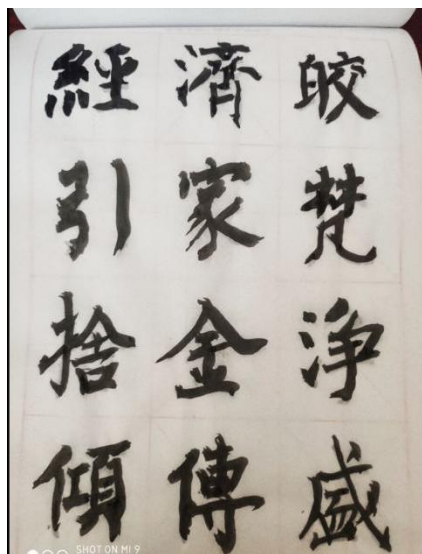 皎梵淨盛
濟家金傳
經引捨傾
SHOT ON MI 9